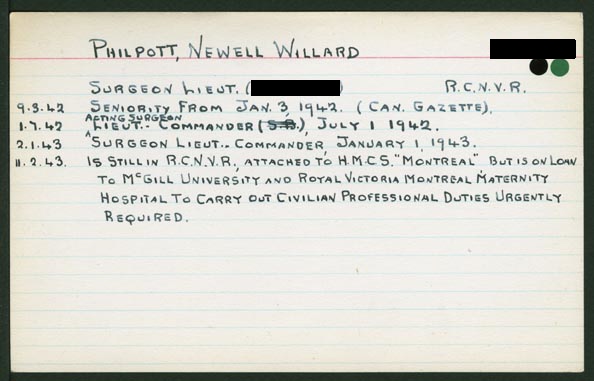 PHILPOTT, NEWELL WILLARD
SURGEON LIEUT. ( ) R.C.N.V.R.
9.3.42 SENIORITY FROM JAN. 3, 1942. (CAN. GAZETTE).
ACTING SURGEON
1.7.42 LIEUT.- COMMANDER (S.B.), JULY 1 1942.
2.1.43 SURGEON LIEUT.- COMMANDER, JANUARY 1, 1943.
11.2.43. IS STILL IN R.C.N.V.R., ATTACHED TO H.M.C.S. "MONTREAL" BUT IS ON LOAN
TO McGILL UNIVERSITY AND ROYAL VICTORIA MONTREAL MATERNITY
HOSPITAL TO CARRY OUT CIVILIAN PROFESSIONAL DUTIES URGENTLY
REQUIRED.